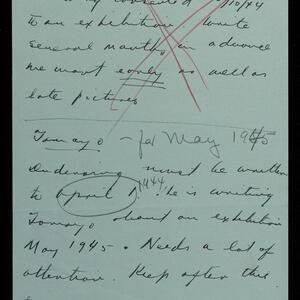 to an exhibition write
several months in advance
We want early as well as
late pictures
Tamayo - for May 1945
must be written
to April 1, 1944. he is writing
Tamayo about an exhibition
May 1945. Needs a lot of
attention. Keep after this